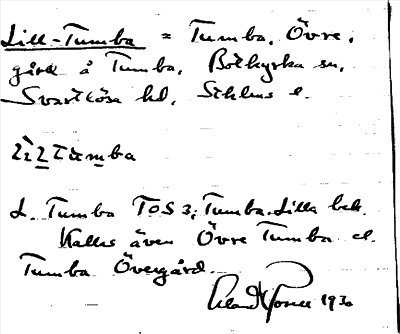 Lill-Tumba = Tumba, Övre,
gård å Tumba, Botkyrka sn,
Svartlösa hd, Sthlms l.
Lìlltumba
L. Tumba TOS 3; Tumba, Lilla bek.
Kallas även Övre Tumba el.
Tumba Övergård.
1930